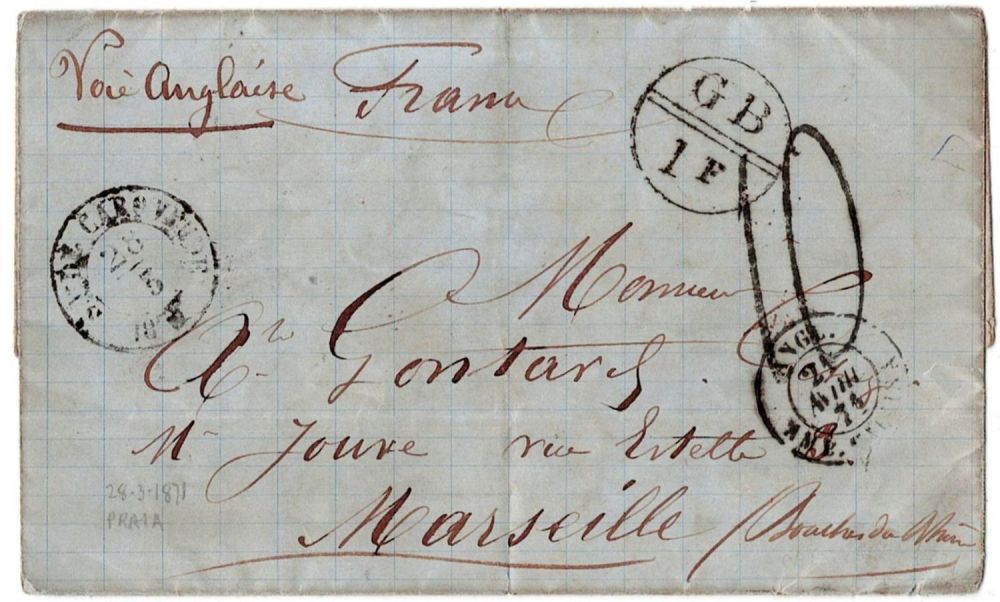 Voie Anglaise France
GB
1F
28
Monsieur
Gontard
Jouve rue Estelle
Marseille
Bouches du Rhône
ANGL.
21
AVRIL
28-3-1871
PRAIA